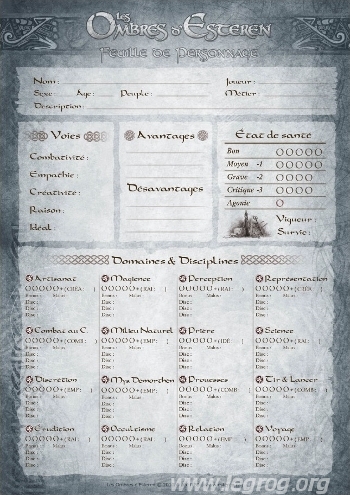 Les
Ombres d'Esteren
Feuille de Personnage
Nom : Joueur :
Sexe : Âge : Peuple : Métier :
Description :
Voies
Combativité :
Empathie :
Créativité :
Raison :
Idéal :
Avantages
Désavantages
État de santé
Bon
Moyen -1
Grave -2
Critique -3
Agonie
Vigueur :
Survie :
Domaines & Disciplines
Artisanat Magience Perception Représentation
+ (CRÉA : ) + (RAI : ) + (RAI : )
Bonus : Malus : Bonus : Malus : Bonus : Malus : Bonus : Malus :
Disc : Disc : Disc : Disc :
Disc : Disc : Disc : Disc :
Disc : Disc : Disc : Disc :
Combat au C. Milieu Naturel Prière Science
+ (COMB : ) + (EMP : ) + (IDÉ : ) + (RAI : )
Bonus : Malus : Bonus : Malus : Bonus : Malus : Bonus : Malus :
Disc : Disc : Disc : Disc :
Disc : Disc : Disc : Disc :
Disc : Disc : Disc : Disc :
Discrétion Mys. Demorthèn Prouesses Tir & Lancer
+ (EMP : ) + (EMP : ) + (COMB : ) + (COMB : )
Bonus : Malus : Bonus : Malus : Bonus : Malus : Bonus : Malus :
Disc : Disc : Disc : Disc :
Disc : Disc : Disc : Disc :
Disc : Disc : Disc : Disc :
Érudition Occultisme Relation Voyage
+ (RAI : ) + (RAI : ) + (EMP : ) + (EMP : )
Bonus : Malus : Bonus : Malus : Bonus : Malus : Bonus : Malus :
Disc : Disc : Disc : Disc :
Disc : Disc : Disc : Disc :
Disc : Disc : Disc : Disc :
www.legrog.org